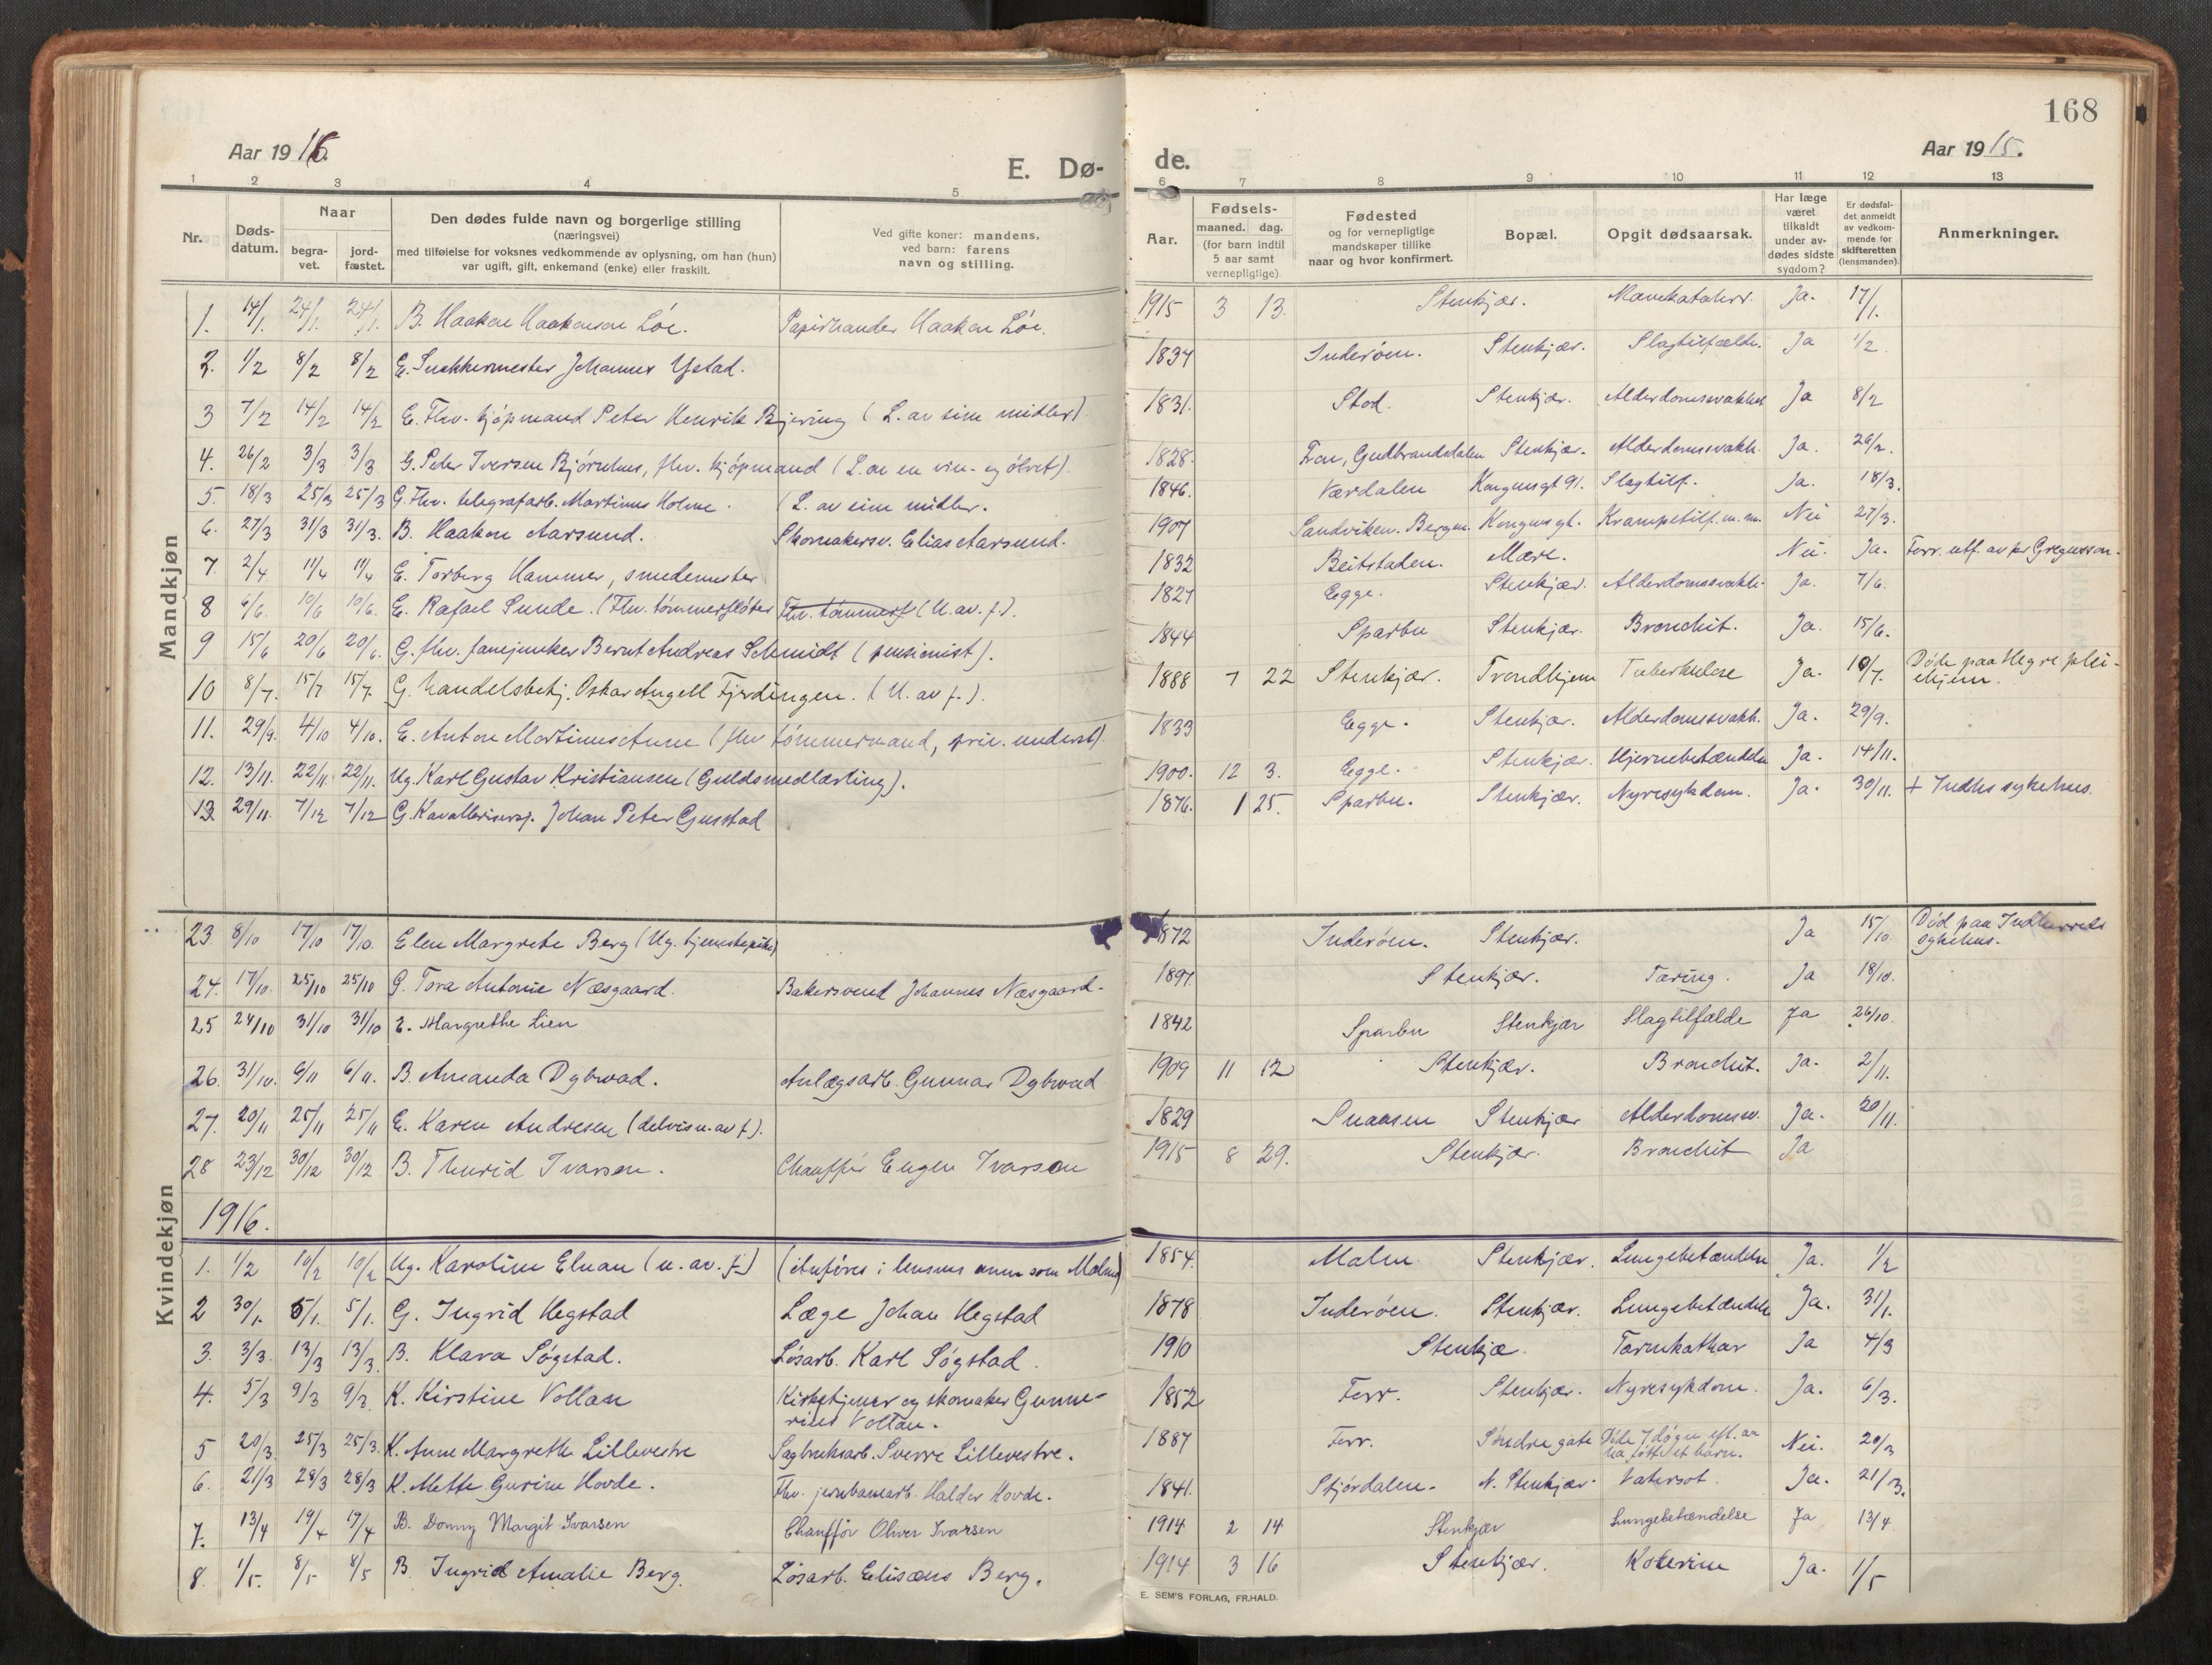 168
Aar 1916.
E. Dø-
de.
Aar 1915.
1 2 3 4 5 6 7 8 9 10 11 12 13
Nr.
Døds-
datum.
Naar
begra-
vet.
jord-
fæstet.
Den dødes fulde navn og borgerlige stilling
(næringsvei)
med tilføielse for voksnes vedkommende av oplysning, om han (hun)
var ugift, gift, enkemand (enke) eller fraskilt.
Ved gifte koner: mandens,
ved barn: farens
navn og stilling.
Aar.
Fødsels-
maaned. dag.
(for barn indtil
5 aar samt
vernepligtige)
Fødested
og for vernepligtige
mandskaper tillike
naar og hvor konfirmert.
Bopæl.
Opgit dødsaarsak.
Har læge
været
tilkaldt
under av-
dødes sidste
sygdom?
Er dødsfal-
det anmeldt
av vedkom-
mende for
skifteretten
(lensmanden).
Anmerkninger.
Mandkjøn
1. 14/1. 24/1. 24/1. B. Haakon Haakonson Løe. Papirhandler Haakon Løe. 1915 3 13. Stenkjær. Ja. 17/1.
2. 1/2 8/2 8/2 E. Snekkermester Johannes Ystad. 1834 Inderøen. Stenkjær. Slagtilfælde. Ja 1/2.
3 7/2 14/2 14/2 E. Fhv. kjøpmand Peter Henrik Bjering (L. av sine midler) 1831. Stod. Stenkjær. Alderdomssvakhet Ja 8/2
4. 26/2 3/3 3/3 G. Peter Iversen Bjørnhus, fhv. kjøpmand (L. av en vin- og ølret). 1828. Fron, Gudbrandsdalen Stenkjær. Alderdomssvakh. Ja. 26/2.
5. 18/3 25/3 25/3 G. Fhv. telegrafarb. Martinus Holme. (L. av sine midler. 1846. Værdalen Kongensgt 91. Slagtilf. Ja. 18/3.
6. 27/3 31/3 31/3. B. Haakon Aarsund. Skomakersv. Elias Aarsund. 1907 Sandviken. Bergen. Kongensgt. Krampetilf. m.m. Nei 27/3.
7. 2/4 11/4 11/4 E. Torberg Hammer, smedemester 1832 Beitstaden. Mære. Nei. Ja. Forr. utf. av pr Gregusson.
8 6/6. 10/6 10/6. E. Rafael Sunde. (Fhv. tømmerfløter Fhv. tømmerf (U. av. f.). 1827 Egge. Stenkjær. Alderdomssvakh. Ja. 7/6.
9 15/6 20/6 20/6. G. fhv. fanejunker Bernt Andreas Schmidt (pensionist). 1844 Sparbu Stenkjær. Bronchit. Ja. 15/6.
10 8/7. 15/7 15/7. G. handelsbetj. Oskar Angell Fjerdingen. (U. av f.). 1888 7 22 Stenkjær. Trondhjem Tuberkulose Ja. 10/7. Døde paa Hegre plei-
ehjem.
11. 29/9. 4/10 4/10. E. Anton Martinus Aune (fhv tømmermand, priv. underst). 1833 Egge. Stenkjær. Alderdomssvakh. Ja. 29/9.
12. 13/11. 22/11. 22/11. Ug. Karl Gustav Kristiansen (Guldsmedlærling). 1900. 12 3. Egge. Stenkjær. Hjernebetændelse Ja. 14/11.
13. 29/11. 7/12 7/12 G. Kavallerisersj. Johan Peter Gusstad 1876. 1 25. Sparbu. Stenkjær. Nyresykdom. Ja. 30/11. + Indhs sykehus.
Kvindekjøn
23. 8/10 17/10 17/10. Elen Margrete Berg (Ug. tjenestepike) 1872 Inderøen. Stenkjær. Ja 15/10. Død paa Indherreds
sykehus.
24. 17/10. 25/10 25/10 G. Tora Antonie Næsgaard. Bakersvend Johannes Næsgaard. 1897. Stenkjær. Tæring. Ja 18/10.
25 24/10 31/10 31/10 E. Margrethe Lien 1842 Sparbu Stenkjær Slagtilfælde Ja 26/10.
26. 31/10. 6/11 6/11. B. Amanda Dybwad. Anlægsarb. Gunnar Dybwad 1909 11 12 Stenkjær. Bronchit. Ja. 2/11.
27. 20/11 25/11 25/11 E. Karen Andresen (delvis u. av f.). 1829 Snaasen Stenkjær Alderdomssv. Ja. 20/11.
28 23/12 30/12 30/12 B. Thurid Ivarson. Chauffør Eugen Ivarson 1915 8 29. Stenkjær. Bronchit Ja
1916.
1. 1/2 10/2 10/2 Ug. Karoline Elnan (u. av. f.) (Anføres i lensmns anm som Malm) 1854. Malm. Stenkjær. Lungebetændelse Ja. 1/2
2 30/1. 5/1. 5/1. G. Ingrid Hegstad Læge Johan Hegstad 1878 Inderøen. Stenkjær. Lungebetændelse Ja. 31/1.
3. 3/3. 13/3 13/3. B. Klara Søgstad. Løsarb. Karl Søgstad. 1910 Stenkjæ. Tarmkathar Ja 4/3
4. 5/3 9/3 9/3. K. Kirstine Vollan Kirketjener og skomaker Gunne-
rius Vollan. 1852 Forr. Stenkjær. Nyresykdom. Ja. 6/3.
5 20/3. 25/3 25/3. K. Anne Margrethe Lillevestre Sagbruksarb. Sverre Lillevestre. 1887 Forr. Søndre gate Døde 7 døgn eft. aa
ha født et barn. Nei. 20/3
6. 21/3 28/3 28/3 K. Mette Gurine Hovde. Fhv. jernbanearb. Haldor Hovde. 1841. Stjørdalen. N. Stenkjær. Vatersot. Ja. 21/3.
7. 13/4 19/4 19/4 B. Donny Margit Ivarsen Chauffør Oliver Ivarsen 1914 2 14 Stenkjær Lungebetændelse Ja 13/4
8. 1/5. 8/5 8/5 B. Ingrid Amalie Berg. Løsarb. Elisæus Berg. 1914 3 16 Stenkjær. Kolerine Ja. 1/5
E. SEM'S FORLAG, FR.HALD.